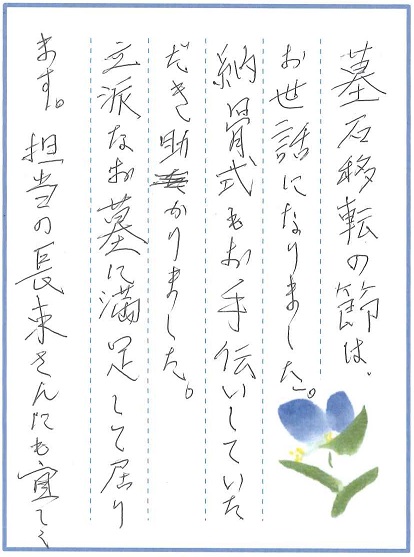 墓石移転の節は、
お世話になりました。
納骨式もお手伝いしていた
だき助かりました。
立派なお墓に満足して居り
ます。担当の長束さんにも宜しく